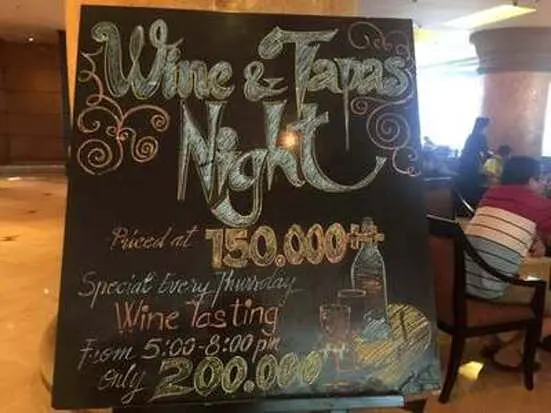 Wine & Tapas
Night
Priced at 150.000++
Special Every Thursday
Wine Tasting
From 5:00-8:00pm
only 200.000++